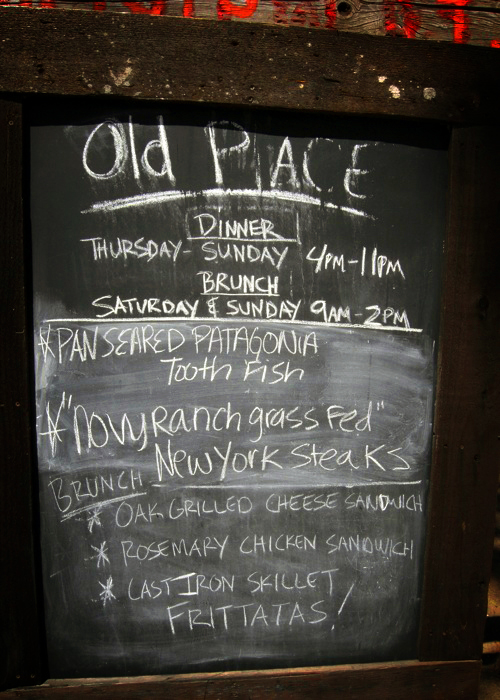 Old PLACE
DINNER
THURSDAY - SUNDAY 4PM-11PM
BRUNCH
SATURDAY & SUNDAY 9AM-2PM
*PAN SEARED PATAGONIA
Tooth Fish
*"Novy Ranch grass Fed"
New York Steaks
BRUNCH
* OAK GRILLED CHEESE SANDWICH
* ROSEMARY CHICKEN SANDWICH
* CAST IRON SKILLET
FRITTATAS!